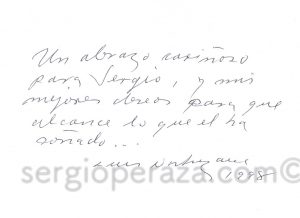 Un abrazo cariñoso
para Sergio, y mis
mejores deseos para que
alcance lo que el ha
soñado...
Luis
1998
sergioperaza.com©